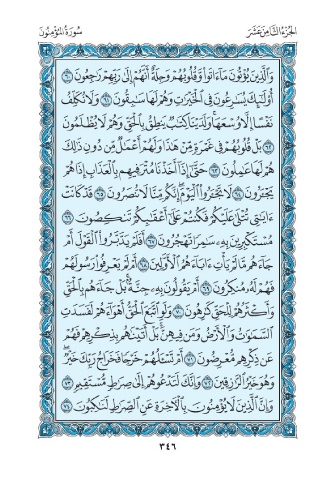 الجزء الثامن عشر
سورة المؤمنون
وَٱلَّذِينَ يُؤْتُونَ مَآ ءَاتَوا۟ وَّقُلُوبُهُمْ وَجِلَةٌ أَنَّهُمْ إِلَىٰ رَبِّهِمْ رَٰجِعُونَ ٦٠
أُو۟لَٰٓئِكَ يُسَٰرِعُونَ فِى ٱلْخَيْرَٰتِ وَهُمْ لَهَا سَٰبِقُونَ ٦١ وَلَا نُكَلِّفُ
نَفْسًا إِلَّا وُسْعَهَا وَلَدَيْنَا كِتَٰبٌ يَنطِقُ بِٱلْحَقِّ وَهُمْ لَا يُظْلَمُونَ
٦٢ بَلْ قُلُوبُهُمْ فِى غَمْرَةٍ مِّنْ هَٰذَا وَلَهُمْ أَعْمَٰلٌ مِّن دُونِ ذَٰلِكَ
هُمْ لَهَا عَٰمِلُونَ ٦٣ حَتَّىٰٓ إِذَآ أَخَذْنَا مُتْرَفِيهِم بِٱلْعَذَابِ إِذَا هُمْ
يَجْـَٔرُونَ ٦٤ لَا تَجْـَٔرُوا۟ ٱلْيَوْمَ إِنَّكُم مِّنَّا لَا تُنصَرُونَ ٦٥ قَدْ كَانَتْ
ءَايَٰتِى تُتْلَىٰ عَلَيْكُمْ فَكُنتُمْ عَلَىٰٓ أَعْقَٰبِكُمْ تَنكِصُونَ ٦٦
مُسْتَكْبِرِينَ بِهِۦ سَٰمِرًا تَهْجُرُونَ ٦٧ أَفَلَمْ يَدَّبَّرُوا۟ ٱلْقَوْلَ أَمْ
جَآءَهُم مَّا لَمْ يَأْتِ ءَابَآءَهُمُ ٱلْأَوَّلِينَ ٦٨ أَمْ لَمْ يَعْرِفُوا۟ رَسُولَهُمْ
فَهُمْ لَهُۥ مُنكِرُونَ ٦٩ أَمْ يَقُولُونَ بِهِۦ جِنَّةٌۢ بَلْ جَآءَهُم بِٱلْحَقِّ
وَأَكْثَرُهُمْ لِلْحَقِّ كَٰرِهُونَ ٧٠ وَلَوِ ٱتَّبَعَ ٱلْحَقُّ أَهْوَآءَهُمْ لَفَسَدَتِ
ٱلسَّمَٰوَٰتُ وَٱلْأَرْضُ وَمَن فِيهِنَّ بَلْ أَتَيْنَٰهُم بِذِكْرِهِمْ فَهُمْ
عَن ذِكْرِهِم مُّعْرِضُونَ ٧١ أَمْ تَسْـَٔلُهُمْ خَرْجًا فَخَرَاجُ رَبِّكَ خَيْرٌ
وَهُوَ خَيْرُ ٱلرَّٰزِقِينَ ٧٢ وَإِنَّكَ لَتَدْعُوهُمْ إِلَىٰ صِرَٰطٍ مُّسْتَقِيمٍ ٧٣
وَإِنَّ ٱلَّذِينَ لَا يُؤْمِنُونَ بِٱلْءَاخِرَةِ عَنِ ٱلصِّرَٰطِ لَنَٰكِبُونَ ٧٤
٣٤٦